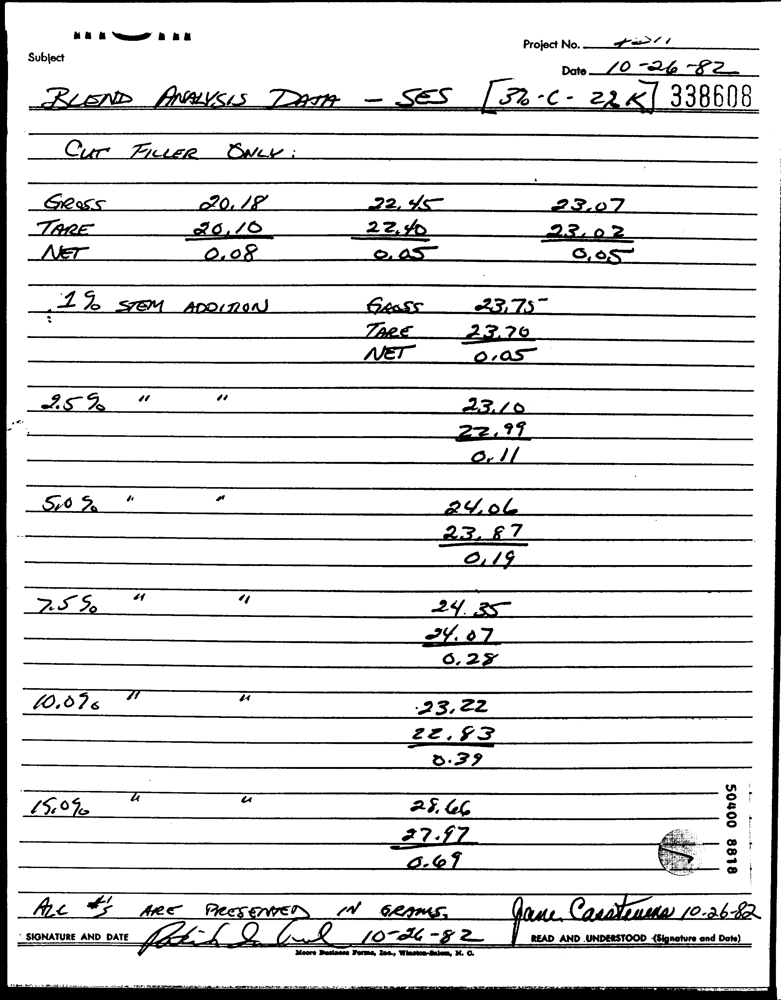 Project No.
Subject
Date 10-26-82
BLEND ANALYSIS DATA - SES [32-C-22K] 338608
CUT FILLER ONLY:
GROSS 20.18 22.45 23.07
TARE 20.10 22.40 23.02
NET 0.08 0.05 0.05
1% STEM ADDITION GROSS 23.75
TARE 23.70
NET 0.05
2.5% " " 23.10
22.99
0.11
5.0% " " 24.06
23.87
0.19
7.5% " " 24.35
24.07
0.28
10.0% " " 23.22
22.83
0.39
15.0% " " 28.66
27.97
0.69
50400 8818
ALL #'S ARE PRESENTED IN GRAMS. Jane Casstevens 10-26-82
SIGNATURE AND DATE 10-26-82 READ AND UNDERSTOOD (Signature and Date)
Moore Business Forms, Inc., Winston-Salem, N. C.